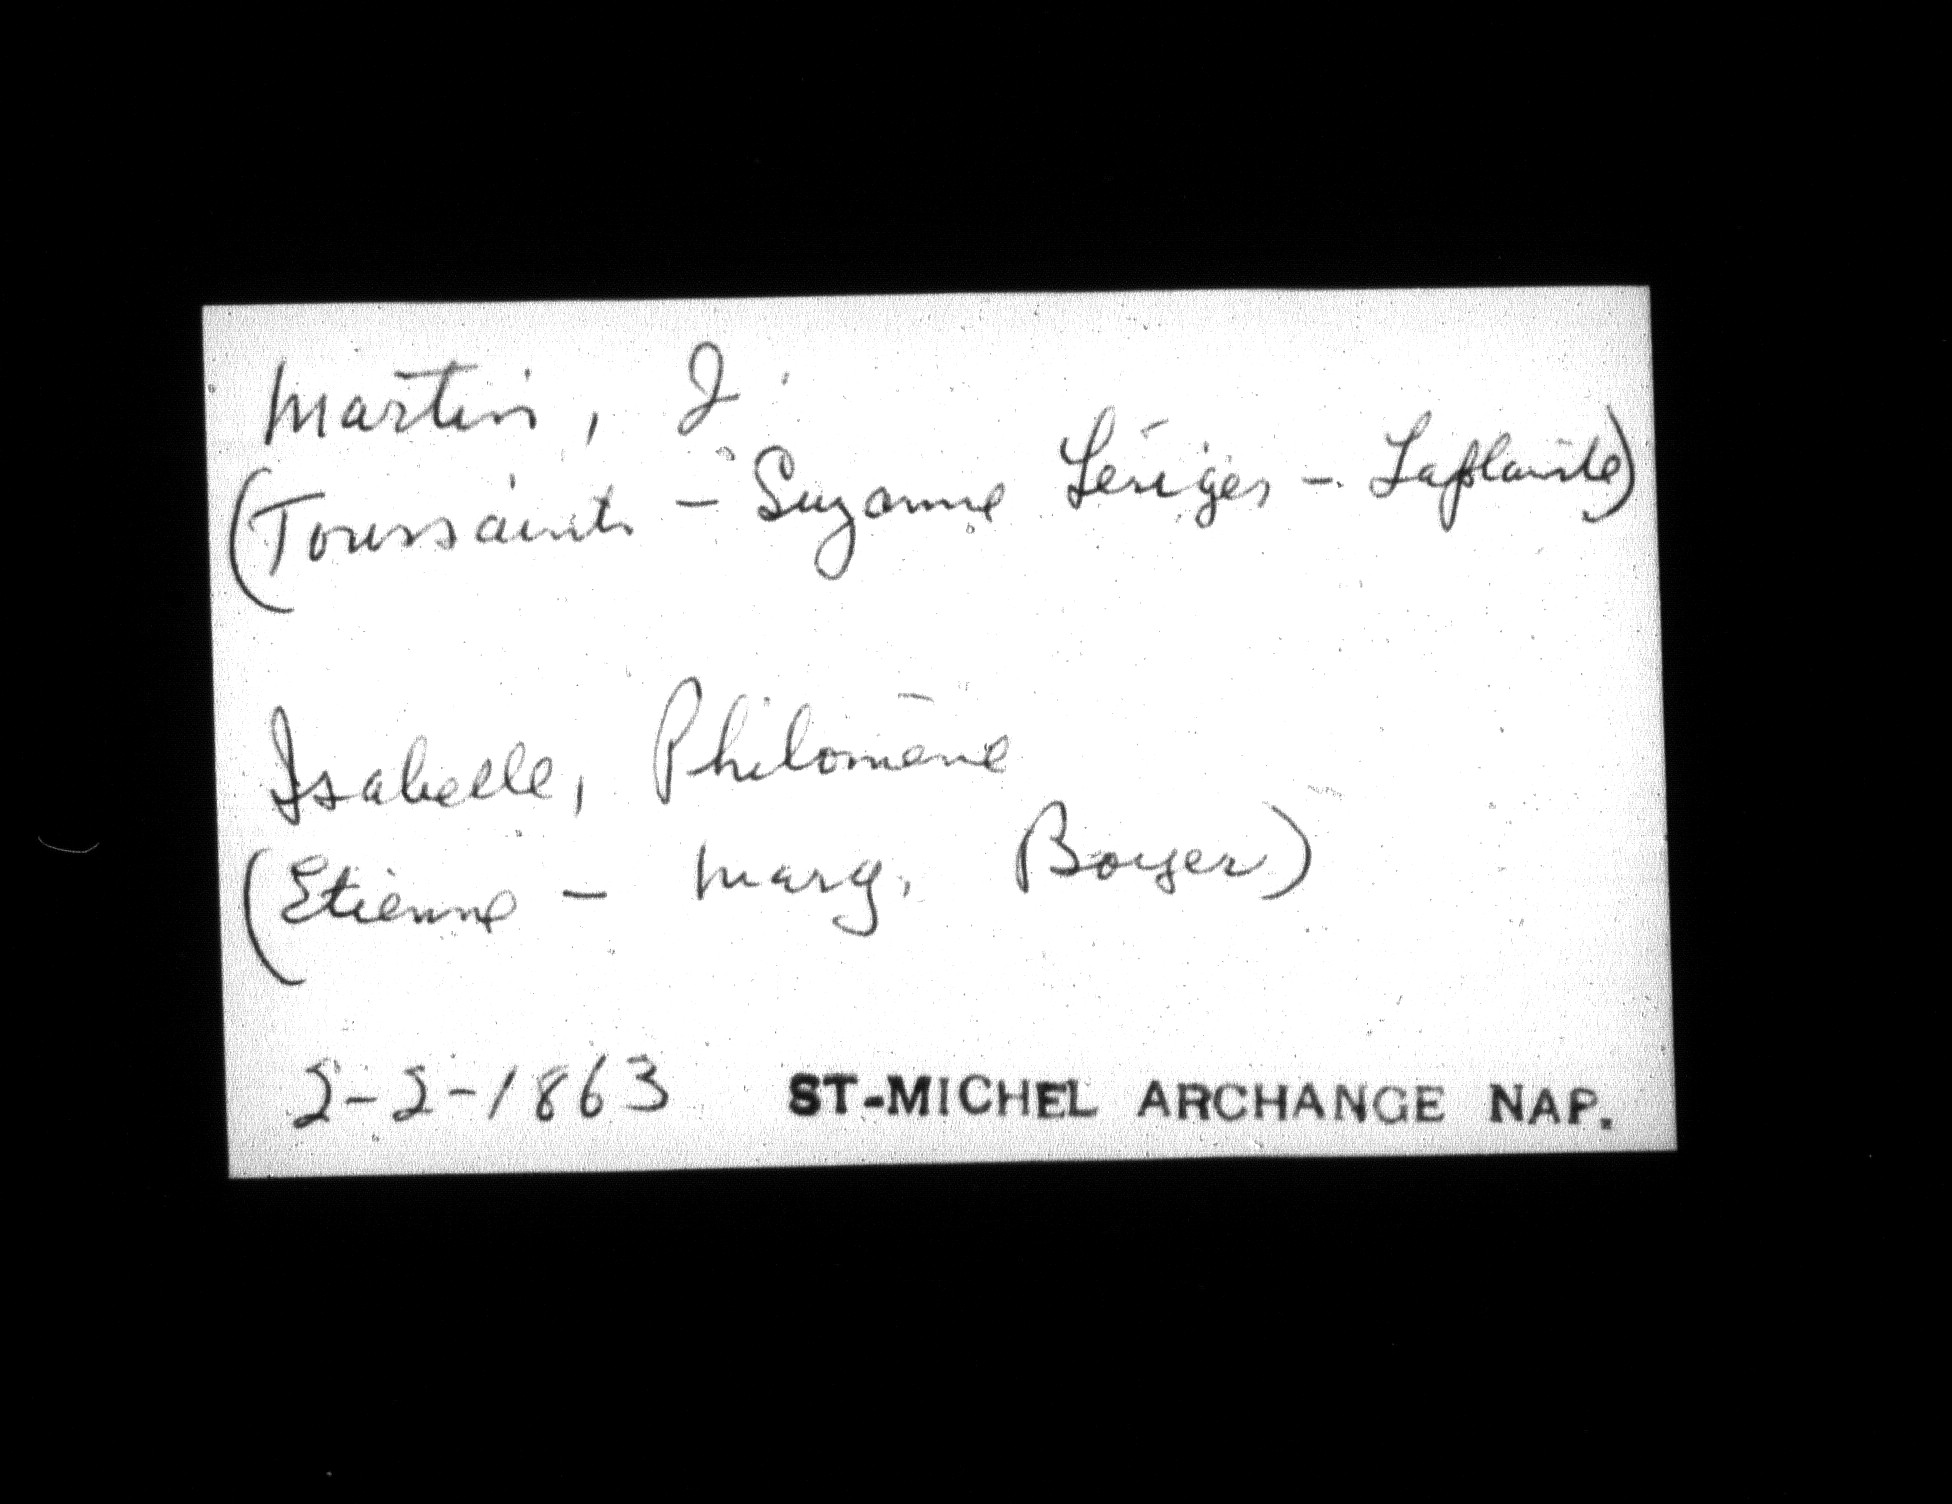 Martin, J
(Toussaint - Suzanne Lériger - Laplante)
Isabelle, Philomène
(Etienne - Marg. Boyer)
2-2-1863 ST-MICHEL ARCHANGE NAP.